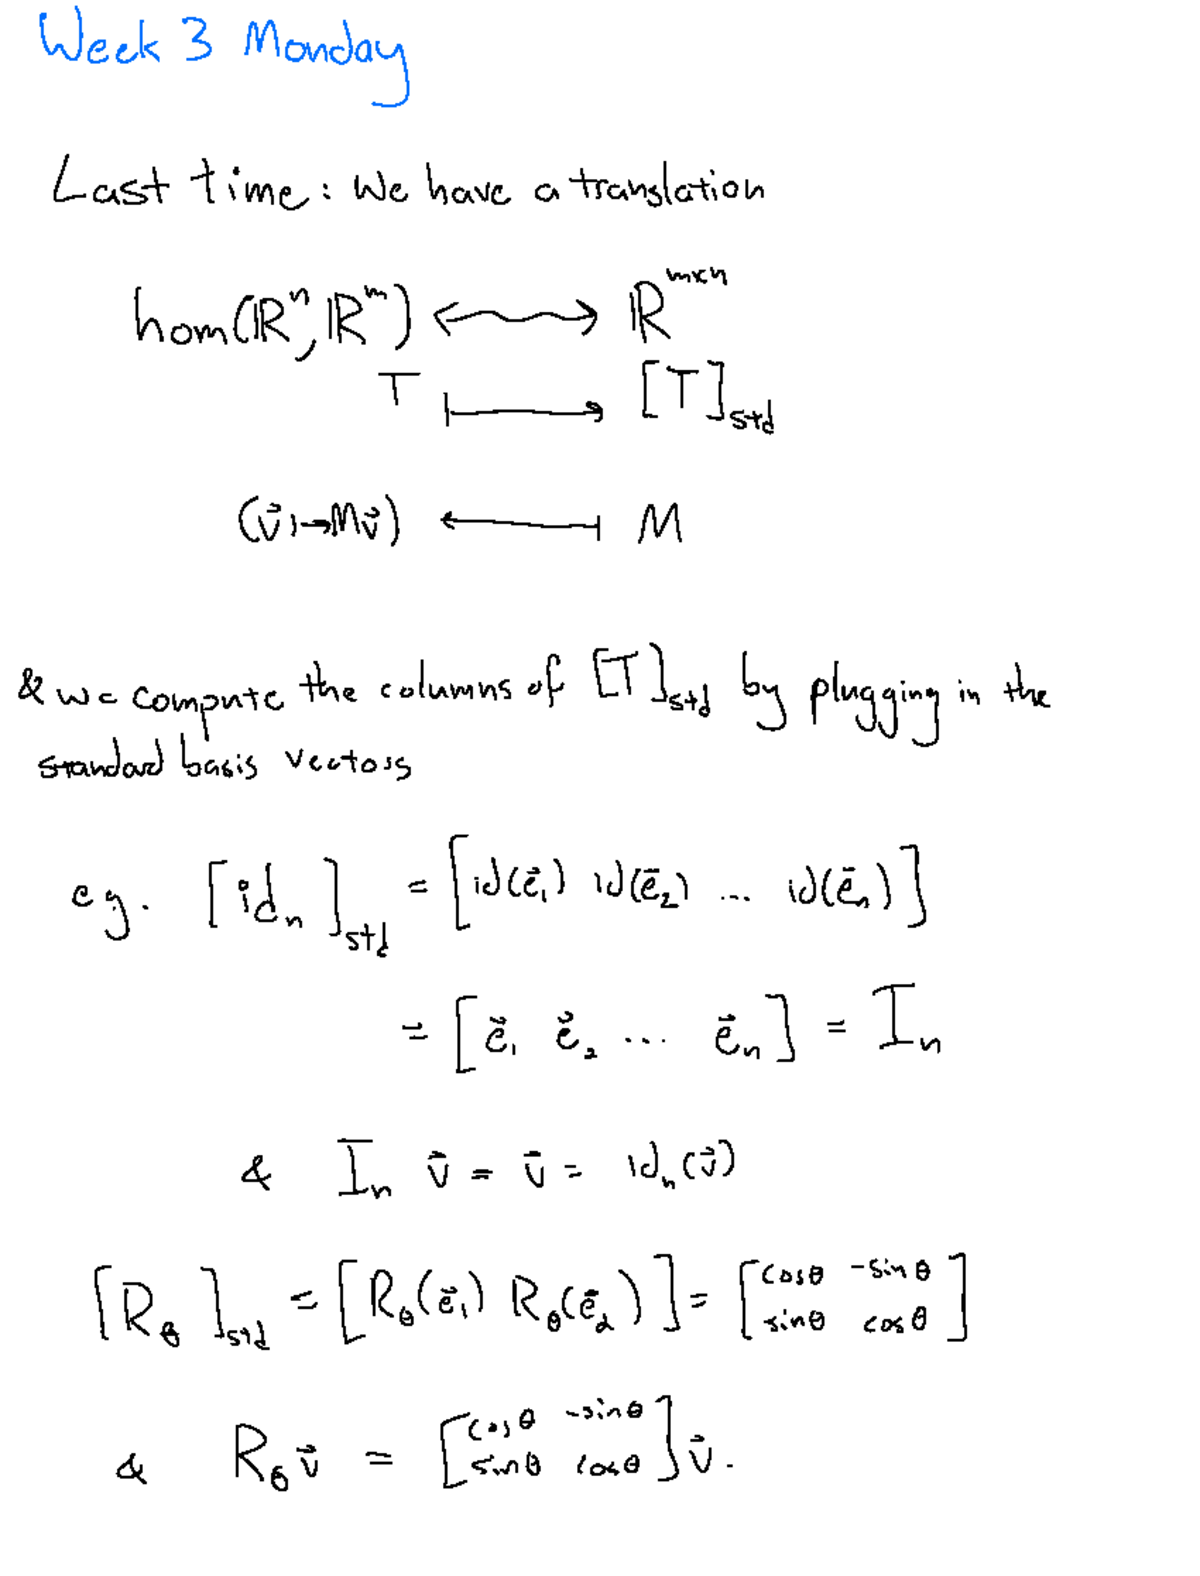 Week 3 Monday
Last time: We have a translation
hom(ℝⁿ, ℝᵐ) ↔ ℝᵐˣⁿ
T ↦ [T]_std
(v⃗ ↦ Mv⃗) ↤ M
& we compute the columns of [T]_std by plugging in the
standard basis vectors
eg. [id_n]_std = [id(e⃗₁) id(e⃗₂) ... id(e⃗ₙ)]
= [e⃗₁ e⃗₂ ... e⃗ₙ] = Iₙ
& Iₙ v⃗ = v⃗ = idₙ(v⃗)
[R_θ]_std = [R_θ(e⃗₁) R_θ(e⃗₂)] = [cosθ -sinθ
sinθ cosθ]
& R_θ v⃗ = [cosθ -sinθ
sinθ cosθ] v⃗.